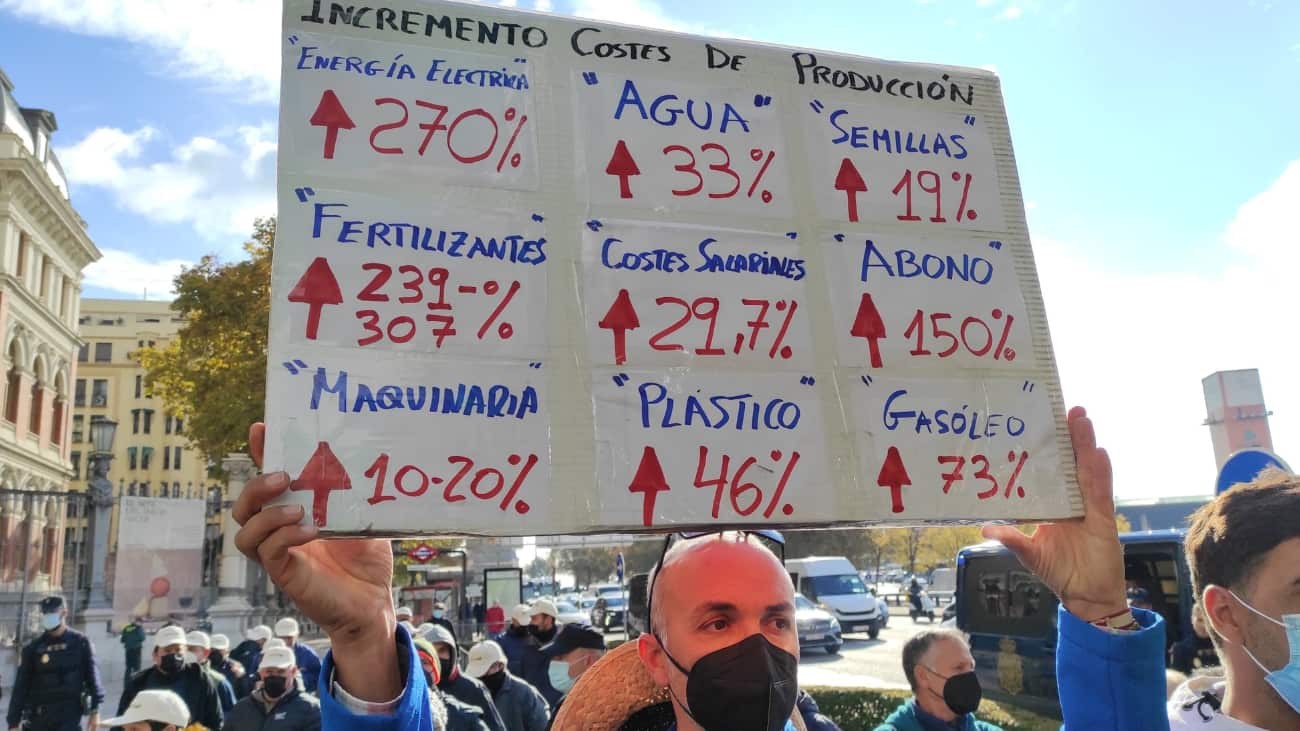 INCREMENTO COSTES DE PRODUCCIÓN
"ENERGÍA ELECTRICA"
270%
"AGUA"
33%
"SEMILLAS"
19%
"FERTILIZANTES"
239-%
307
"COSTES SALARIALES"
29,7%
"ABONO"
150%
"MAQUINARIA"
10-20%
"PLÁSTICO"
46%
"GASÓLEO"
73%